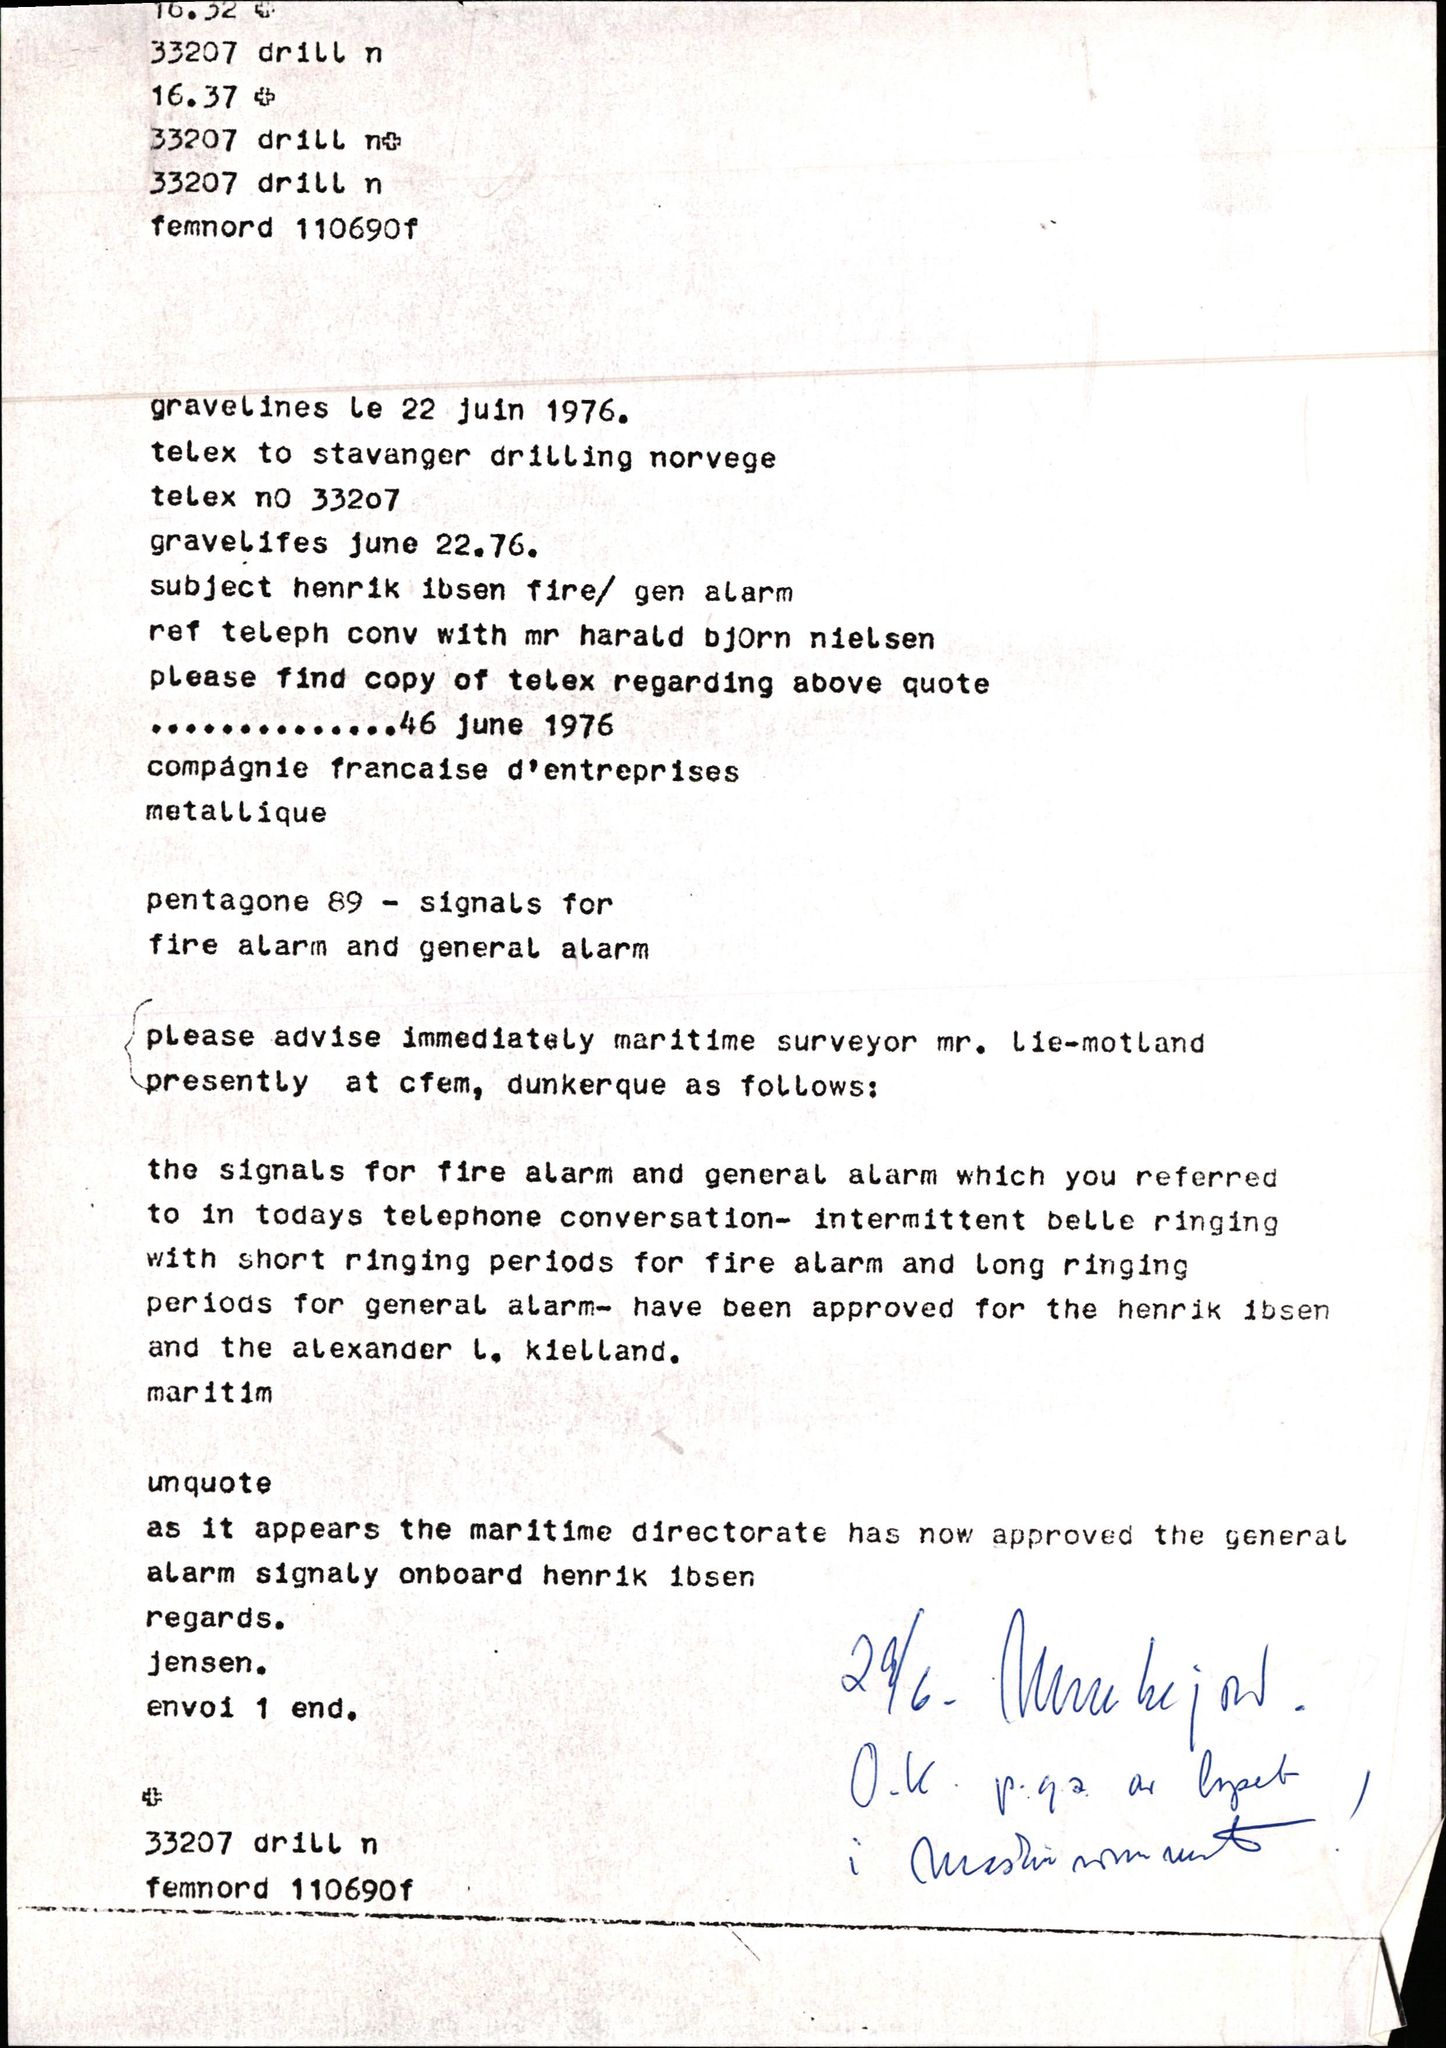 16.32 ✠
33207 drill n
16.37 ✠
33207 drill n✠
33207 drill n
femnord 110690f
gravelines le 22 juin 1976.
telex to stavanger drilling norvege
telex n0 332o7
gravelifes june 22.76.
subject henrik ibsen fire/ gen alarm
ref teleph conv with mr harald bj0rn nielsen
please find copy of telex regarding above quote
..............46 june 1976
compágnie francaise d'entreprises
metallique
pentagone 89 - signals for
fire alarm and general alarm
please advise immediately maritime surveyor mr. lie-motland
presently at cfem, dunkerque as follows:
the signals for fire alarm and general alarm which you referred
to in todays telephone conversation- intermittent belle ringing
with short ringing periods for fire alarm and long ringing
periods for general alarm- have been approved for the henrik ibsen
and the alexander l. kielland.
maritim
unquote
as it appears the maritime directorate has now approved the general
alarm signaly onboard henrik ibsen
regards.
jensen.
envoi 1 end.
✠
33207 drill n
femnord 110690f
29/6-
O.K. p.g.a. av lyset
i maskinrommet!